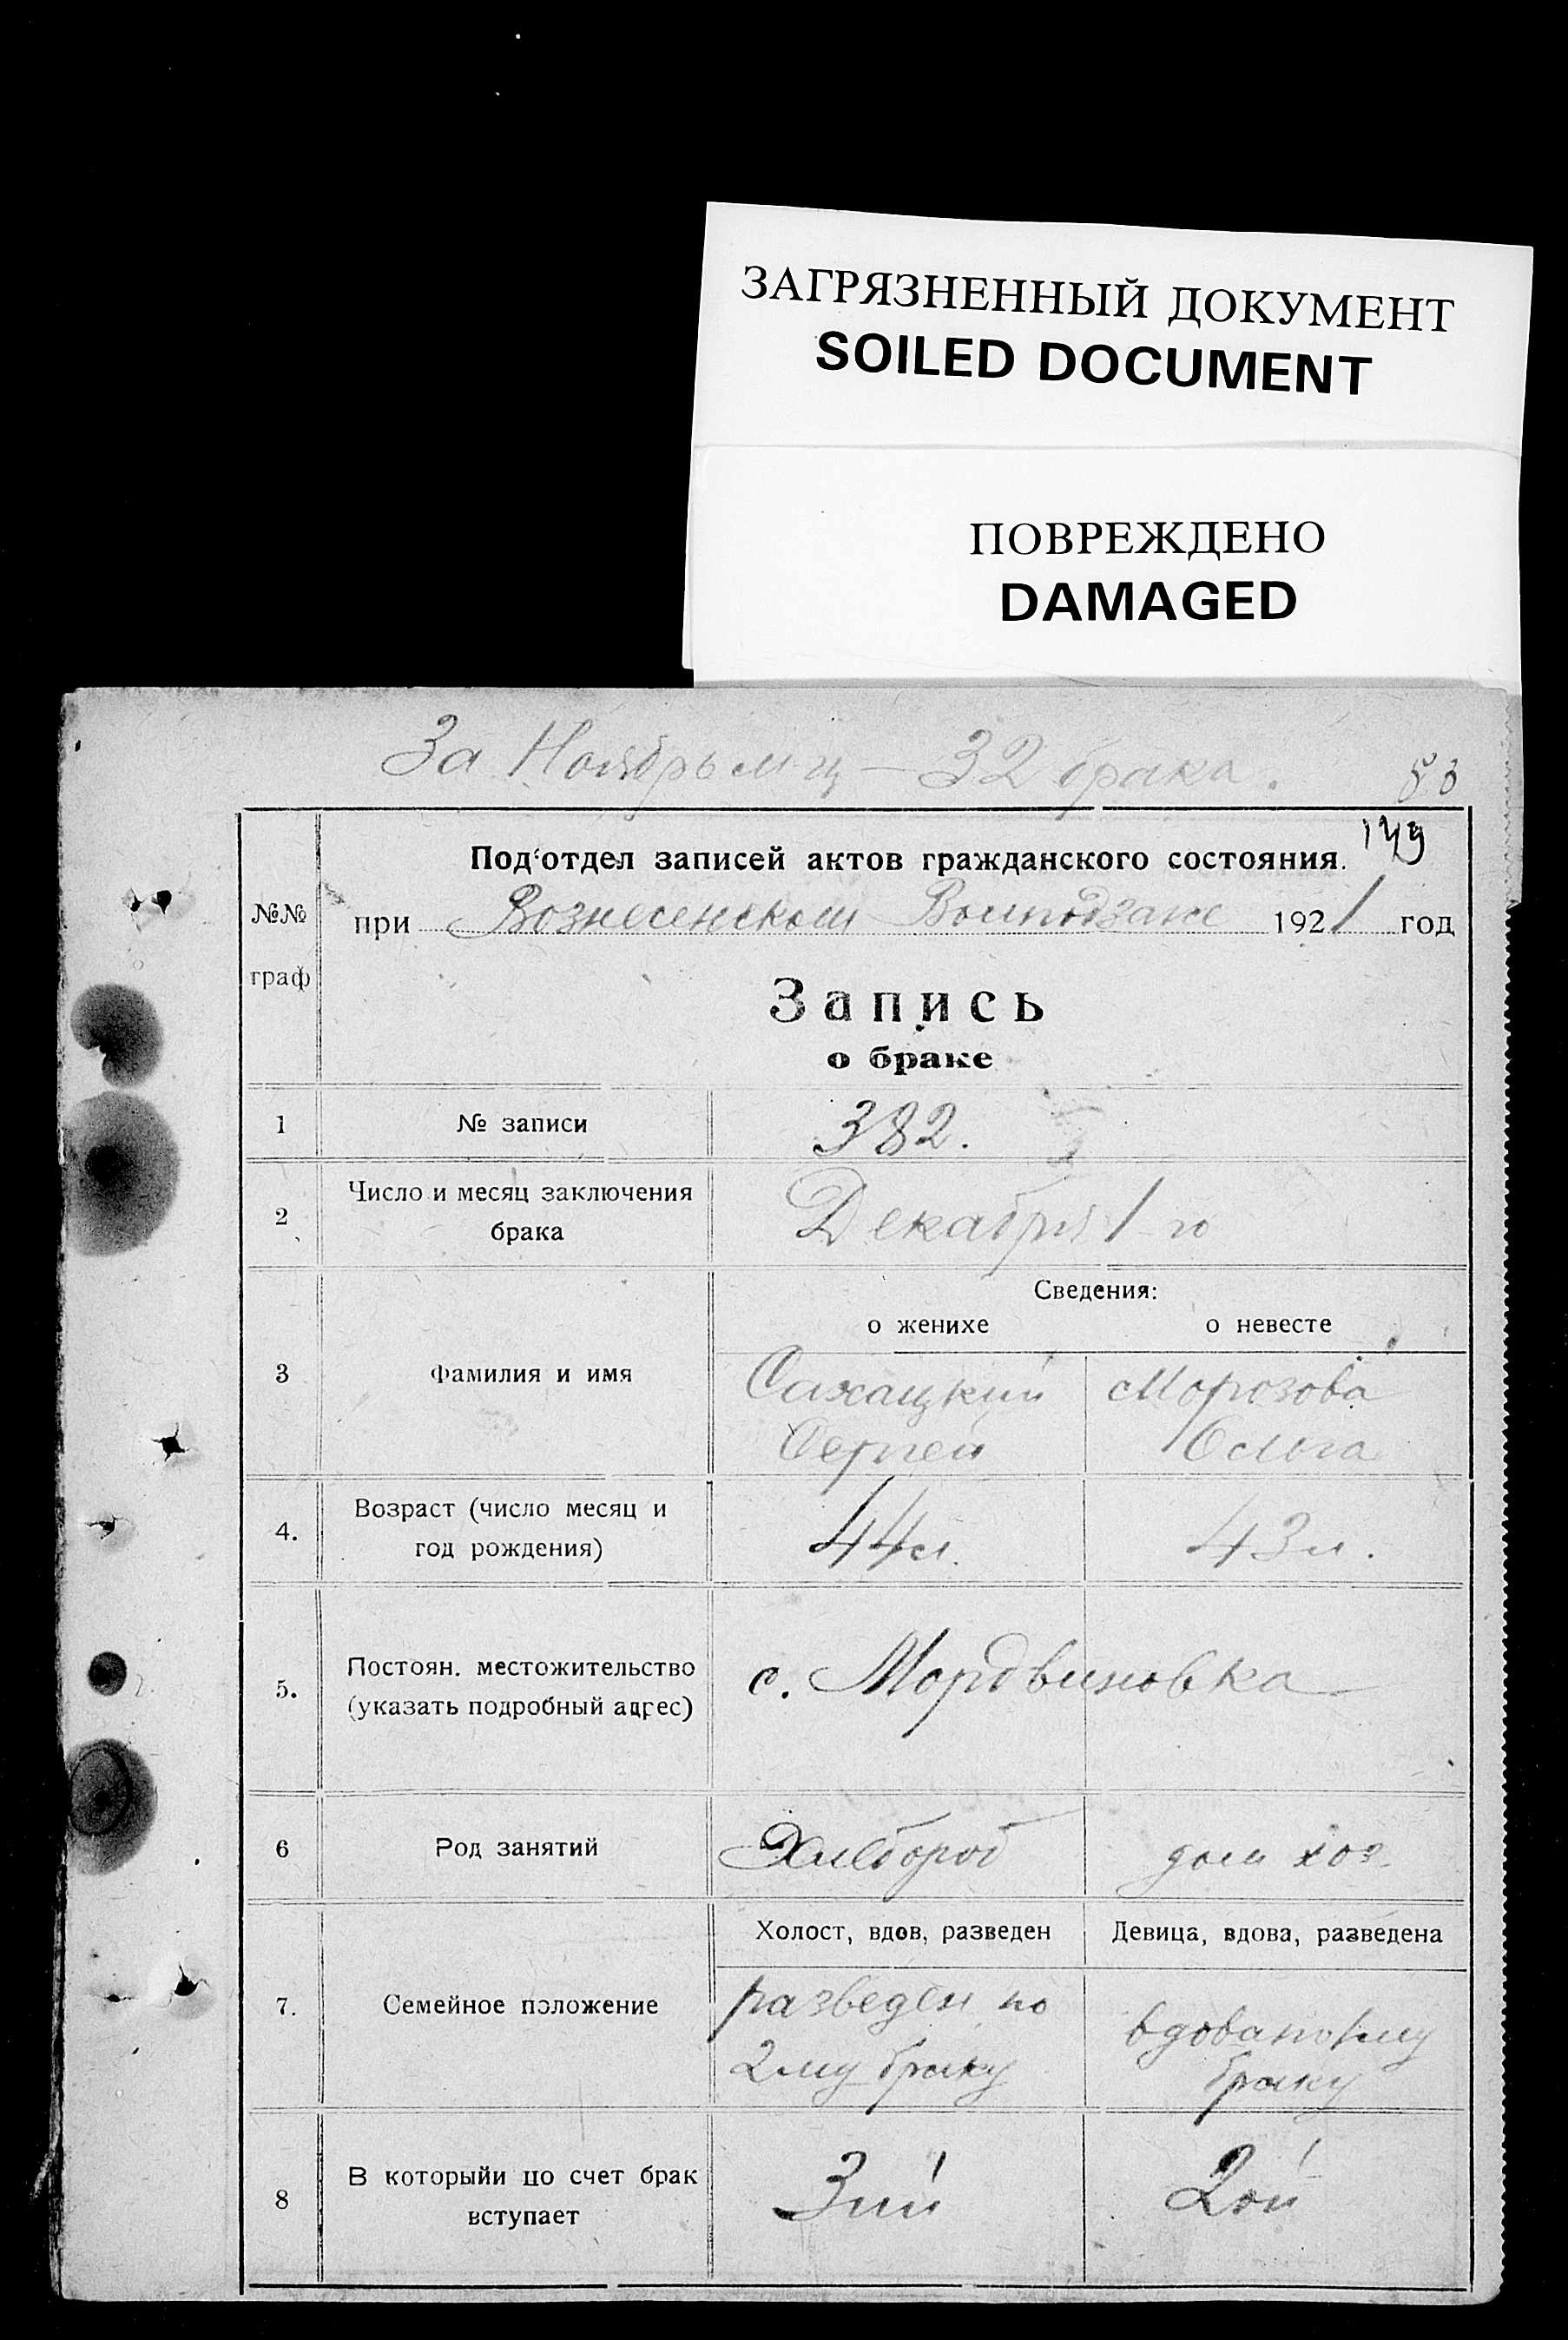 ЗАГРЯЗНЕННЫЙ ДОКУМЕНТ
SOILED DOCUMENT
ПОВРЕЖДЕНО
DAMAGED
За Ноябрь м-ц — 32 брака.
83
149
Под'отдел записей актов гражданского состояния.
№№ граф
при Вознесенском Волподзагсе 1921 год
Запись
о браке
1 № записи 382.
2 Число и месяц заключения брака Декабря 1-го
Сведения:
о женихе о невесте
3 Фамилия и имя
Сахацкий Морозова
Сергей Ольга
4. Возраст (число месяц и год рождения) 44 л. 43 л.
5. Постоян. местожительство (указать подробный адрес) с. Мордвиновка
6 Род занятий Хлебороб дом хоз.
Холост, вдов, разведен Девица, вдова, разведена
7. Семейное положение
разведен по вдова по 1му
2му браку браку
8 В которыйи по счет брак вступает 3ий 2ой